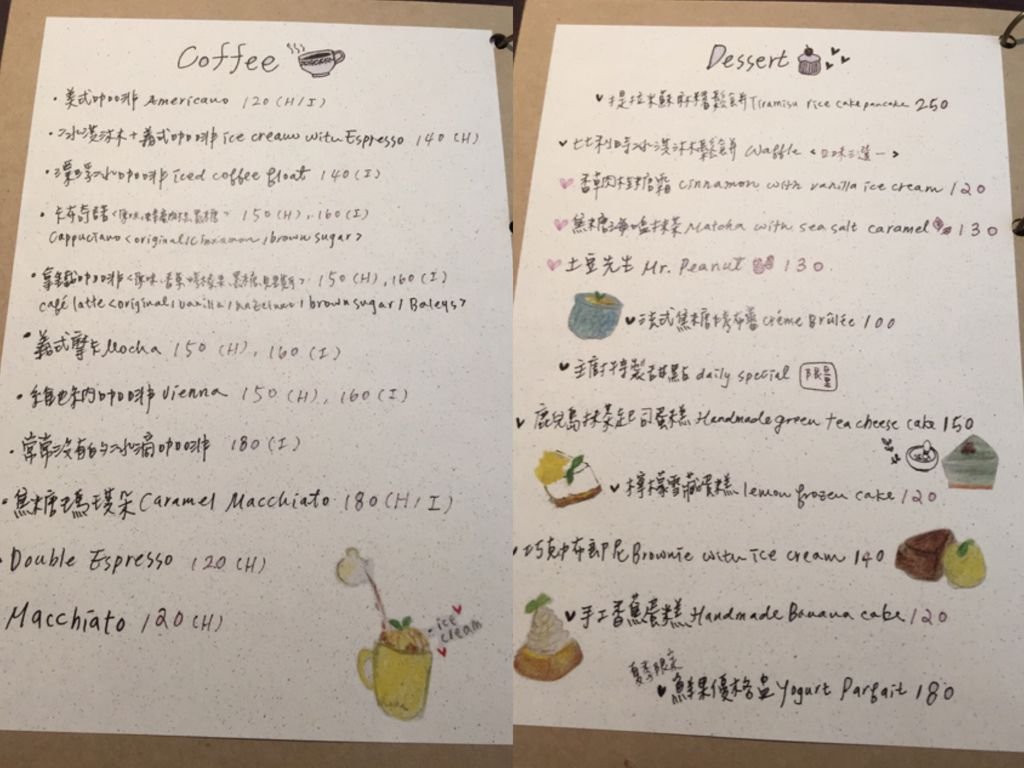 Coffee
・美式咖啡 Americano 120 (H/I)
・冰淇淋+義式咖啡 ice cream with Espresso 140 (H)
・漂浮冰咖啡 iced coffee float 140 (I)
・卡布奇諾<原味、肉桂、黑糖> 150 (H), 160 (I)
Cappuciano <original/Cinnamon/brown sugar>
・拿鐵咖啡<原味、香草、榛果、黑糖、貝里斯> 150 (H), 160 (I)
café latte <original/vanilla/hazelnut/brown sugar/Baleys>
・義式摩卡 Mocha 150 (H), 160 (I)
・維也納咖啡 Vienna 150 (H), 160 (I)
・常常沒有的冰滴咖啡 180 (I)
・焦糖瑪琪朵 Caramel Macchiato 180 (H/I)
・Double Espresso 120 (H)
Macchiato 120 (H)
ice
cream
Dessert
提拉米蘇米糕鬆餅 Tiramisu rice cake pancake 250
比利時冰淇淋鬆餅 Waffle <口味三選一>
香草肉桂糖霜 cinnamon with vanilla ice cream 120
焦糖海鹽抹茶 Matcha with sea salt caramel 130
土豆先生 Mr. Peanut 130
法式焦糖烤布蕾 créme Brûlée 100
主廚特製甜點 daily special 限量
鹿兒島抹茶起司蛋糕 Handmade green tea cheese cake 150
檸檬雪藏蛋糕 lemon frozen cake 120
巧克力布朗尼 Brownie with ice cream 140
手工香蕉蛋糕 Handmade Banana cake 120
夏季限定
鮮果優格盅 Yogurt Parfait 180